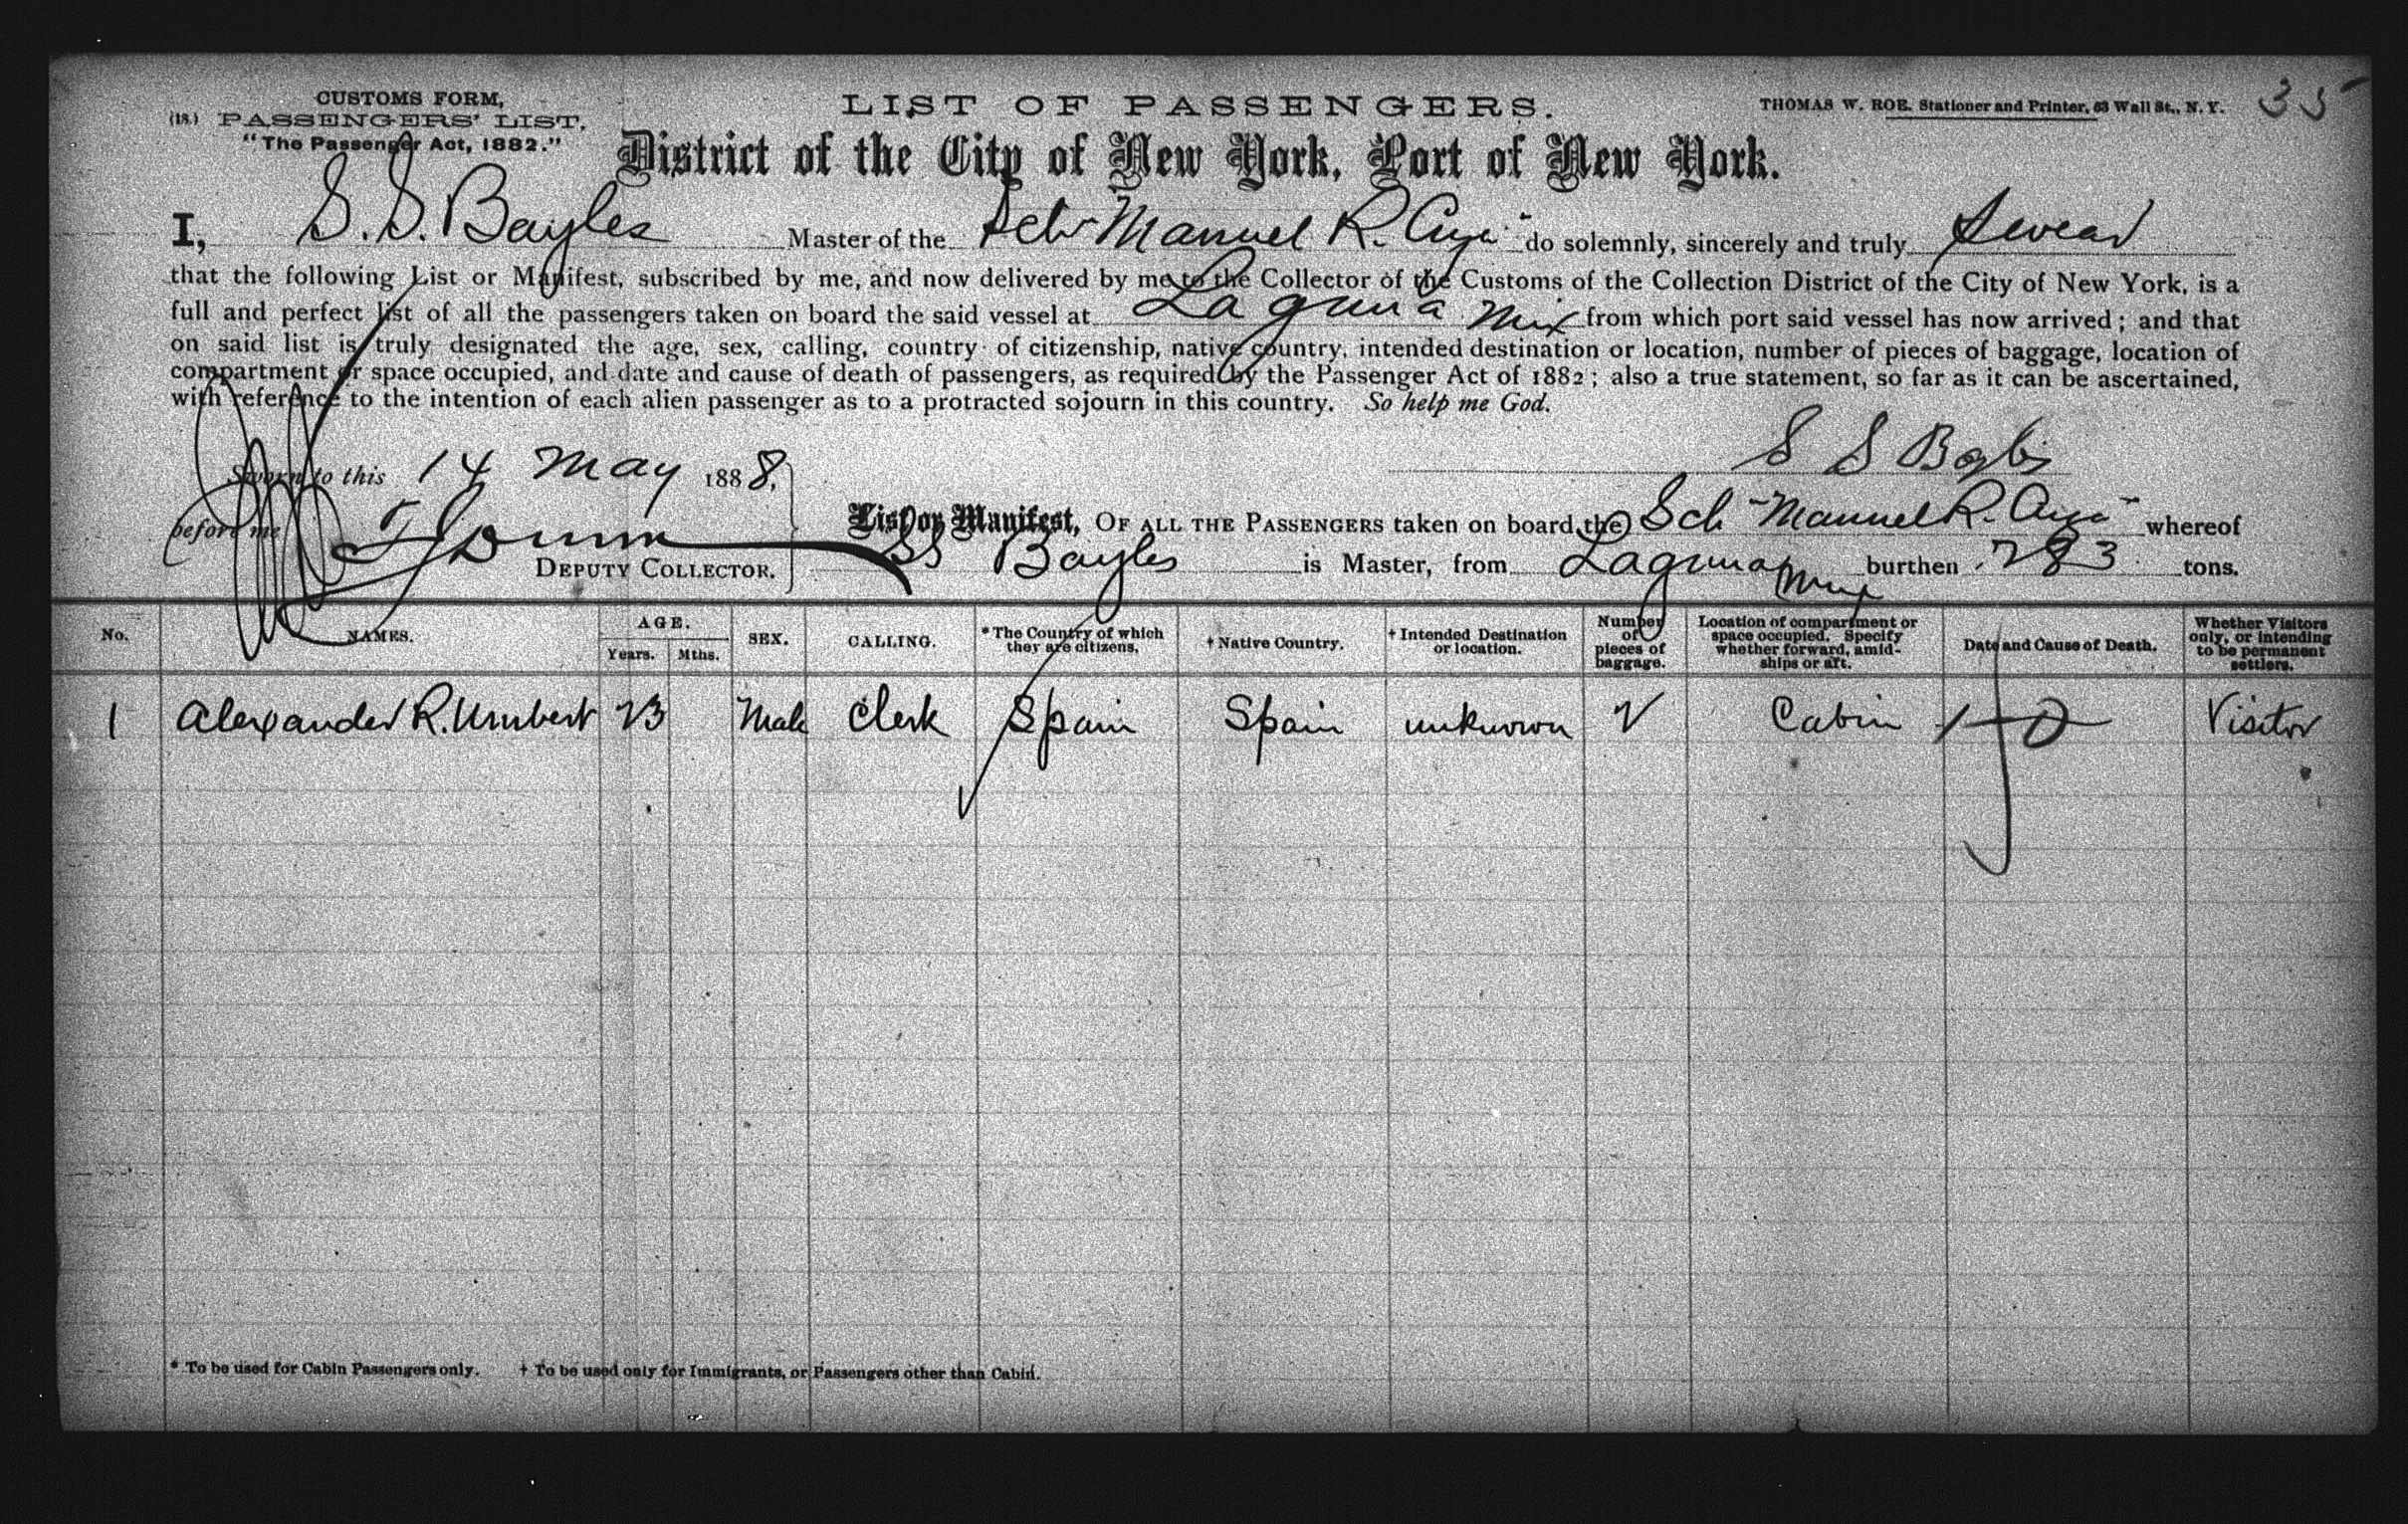 CUSTOMS FORM,
(18.) PASSENGERS' LIST.
"The Passenger Act, 1882."
LIST OF PASSENGERS.
THOMAS W. ROE, Stationer and Printer, 63 Wall St., N. Y.
35
District of the City of New York, Port of New York.
I, S. S. Bayles Master of the Schr "Manuel R. Cuza" do solemnly, sincerely and truly Swear
that the following List or Manifest, subscribed by me, and now delivered by me to the Collector of the Customs of the Collection District of the City of New York, is a
full and perfect list of all the passengers taken on board the said vessel at Laguna Mex from which port said vessel has now arrived; and that
on said list is truly designated the age, sex, calling, country of citizenship, native country, intended destination or location, number of pieces of baggage, location of
compartment or space occupied, and date and cause of death of passengers, as required by the Passenger Act of 1882; also a true statement, so far as it can be ascertained,
with reference to the intention of each alien passenger as to a protracted sojourn in this country. So help me God.
S S Bayles
Sworn to this 14 May 1888,
before me
DEPUTY COLLECTOR.
List or Manifest, OF ALL THE PASSENGERS taken on board the Sch "Manuel R. Cuza" whereof
SS Bayles is Master, from Laguna Mex burthen 283 tons.
No. NAMES. AGE. Years. Mths. SEX. CALLING. * The Country of which they are citizens. † Native Country. † Intended Destination or location. Number of pieces of baggage. Location of compartment or space occupied. Specify whether forward, amidships or aft. Date and Cause of Death. Whether Visitors only, or intending to be permanent settlers.
1 Alexander R. Umbert 23 Male Clerk Spain Spain unknown 2 Cabin Visitor
* To be used for Cabin Passengers only. † To be used only for Immigrants, or Passengers other than Cabin.